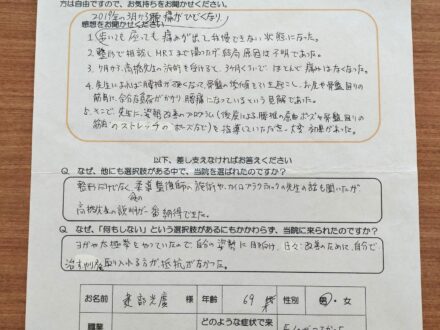 方は自由ですので、お気持ちをお聞かせください
感想をお聞かせください
2019年の3月から腰痛がひどくなり
1. 歩いても座っても痛みが出て我慢できない状態になった。
2. 整形で相談しMRIまで撮ったが結局原因は不明であった。
3. 7月から、高橋先生の治療を受けると、3ヶ月くらいでほとんど痛みはなくなった。
4. 先生によれば腰椎が
筋肉に余分な負荷がかかり腰痛になっているという見解であった。
5. そこで先生に、姿勢改善のプログラム
筋肉のストレッチのポーズなど)を指導していただき、大変効果があった。
以下、差し支えなければお答えください
Q. なぜ、他にも選択肢がある中で、当院を選ばれたのですか?
整形だけでなく、柔道整復師の施術や、カイロプラクティックの先生の話も聞いたが、
高橋先生の説明が一番納得できた。
Q. なぜ、「何もしない」という選択肢があるにもかかわらず、当院に来られたのですか?
ヨガや太極拳をやっていたので自分の姿勢に目を向け、日々改善のために、自分で
取り入れる方が抵抗がなかった。
お名前 様 年齢 69 歳 性別 男・女
職業 どのような症状で来